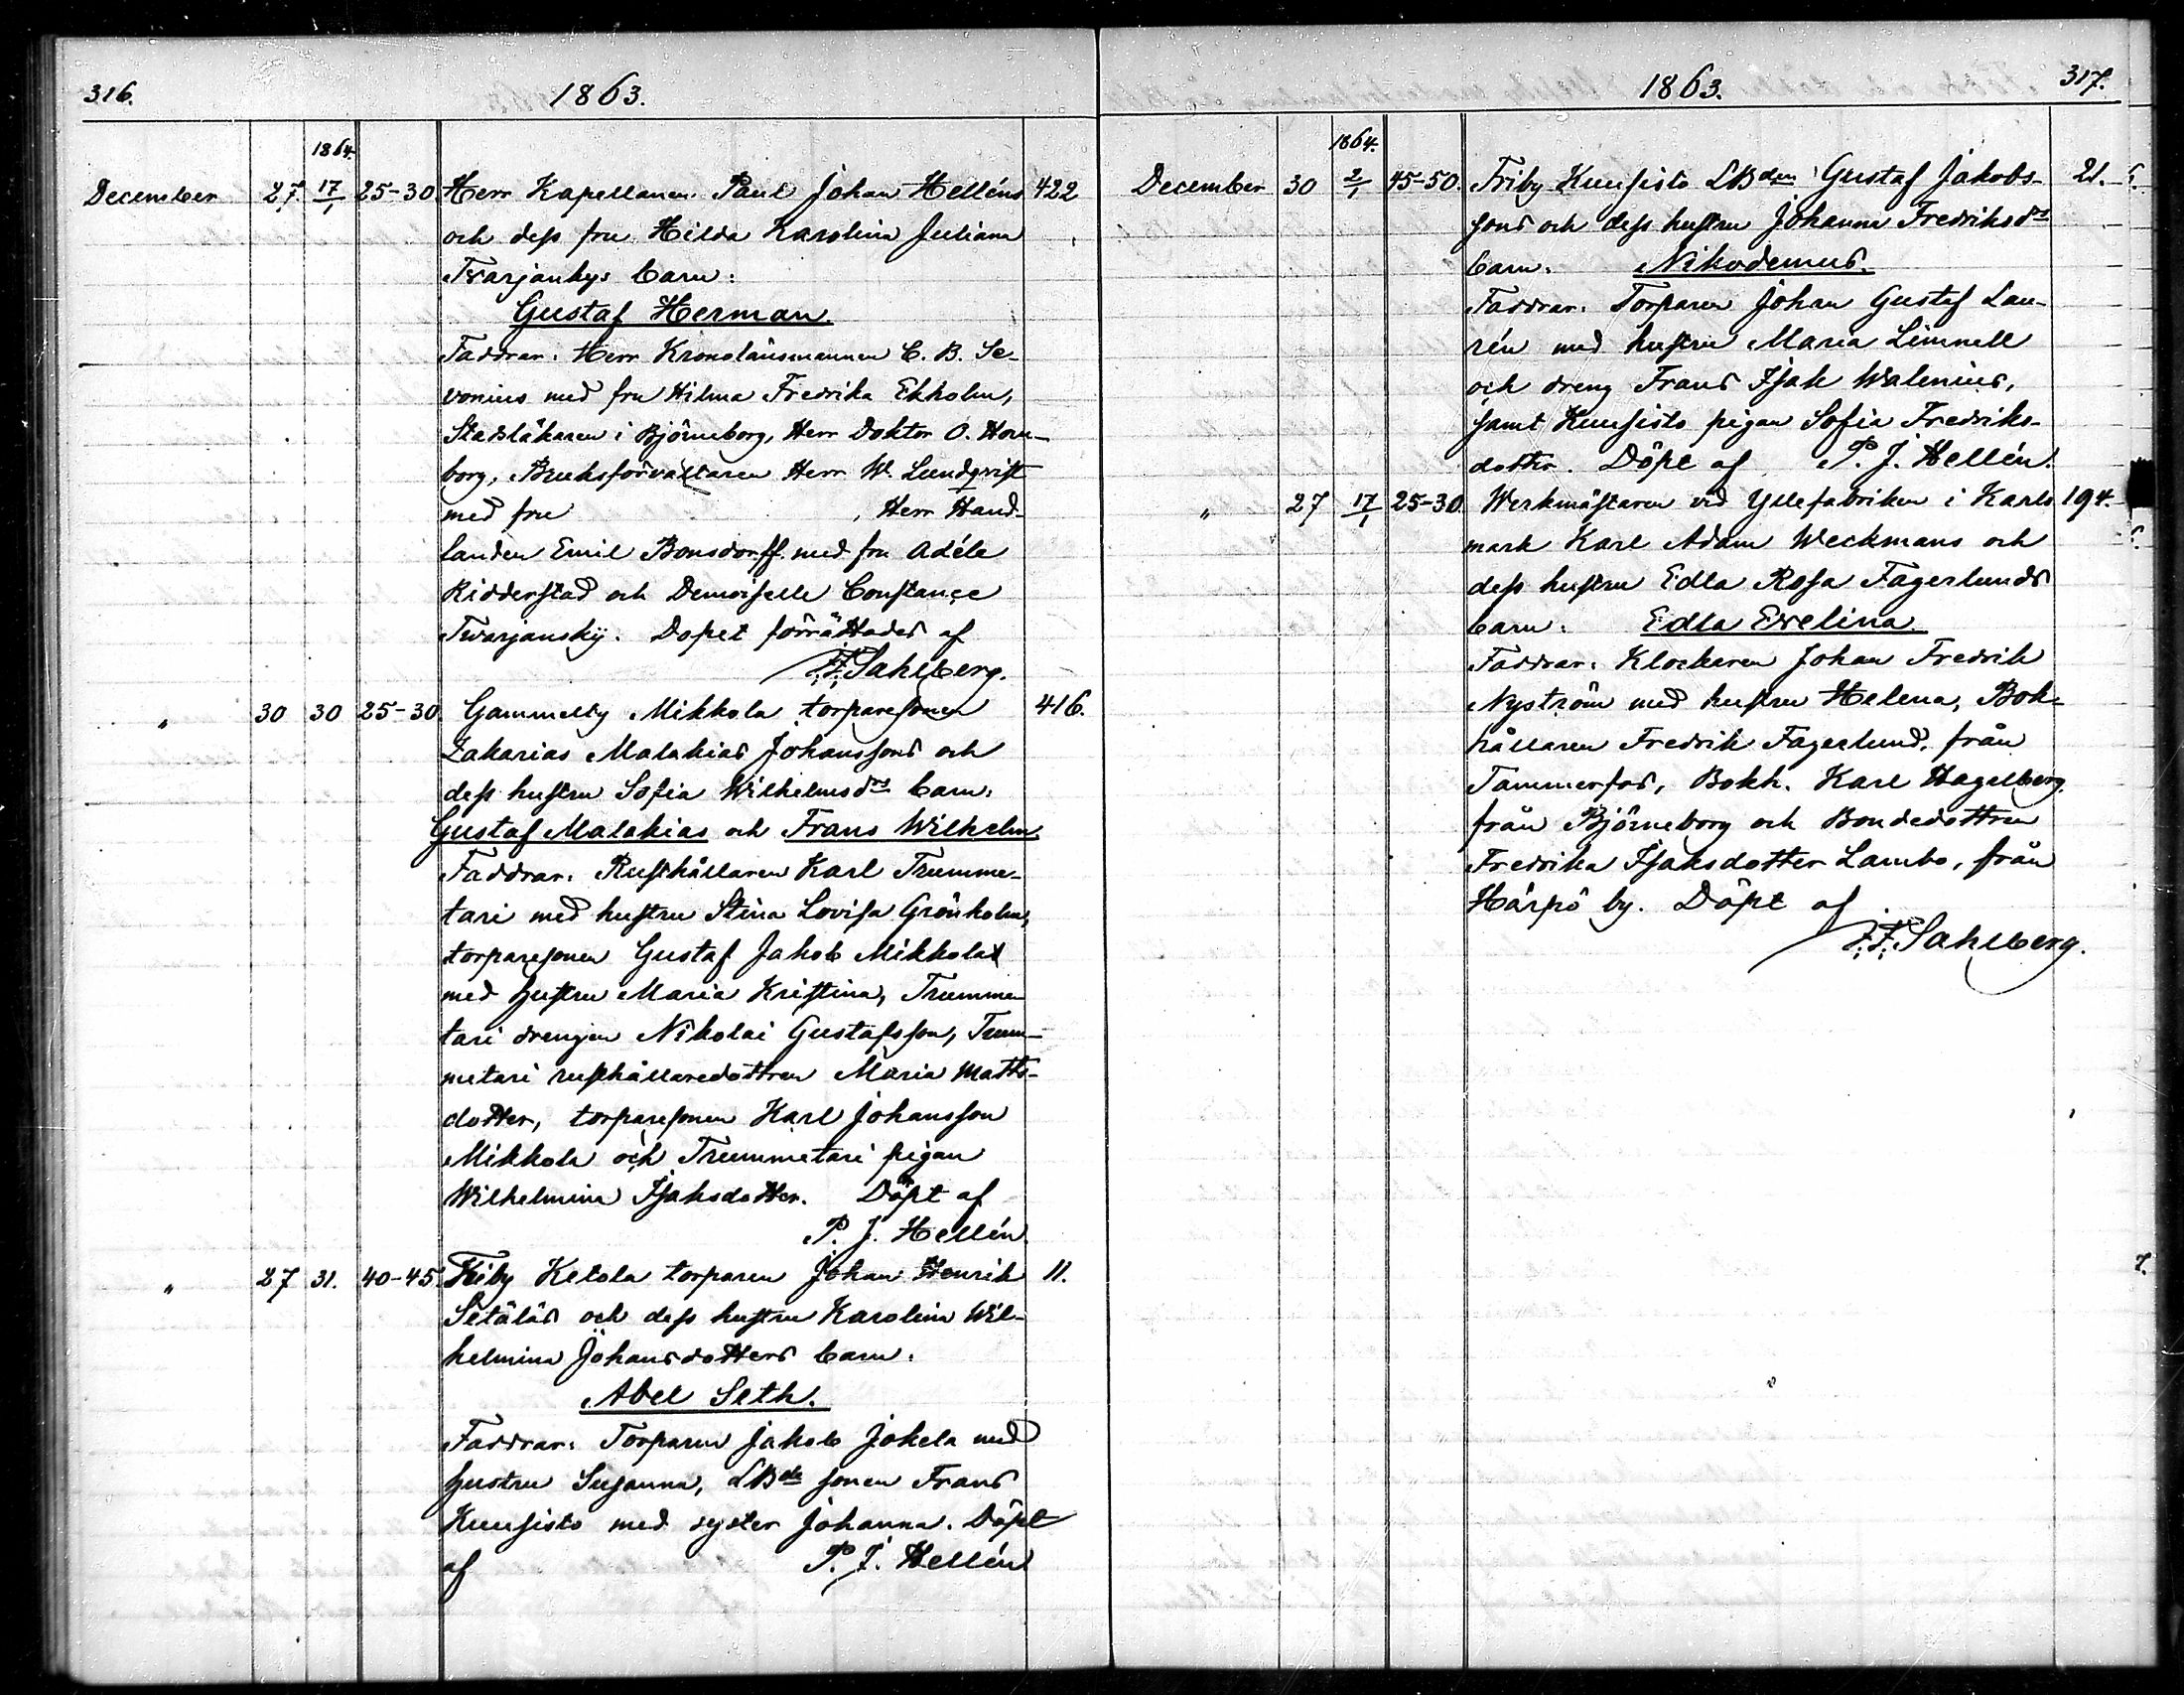 316.
1863.
1864.
December 27. 17/1 25-30 Herr Kapellanen Paul Johan Helléns 422
och dess fru Hilda Karolina Juliana
Twarjanskys barn:
Gustaf Herman.
Faddrar: Herr Kronolänsmannen C. B. Se-
vonius med fru Hilma Fredrika Ekholm,
Stadsläkaren i Björneborg, Herr Doktor O. Horn-
borg, Bruksförvaltaren Herr W. Lundqvist
med fru , Herr Hand-
landen Emil Bonsdorff med fru Adéle
Ridderstad och Demoiselle Constance
Twarjansky. Dopet förrättades af
F. F. Sahlberg.
" 30 30 25-30. Gammelby Mikkola torparesonen 416.
Zakarias Malakias Johanssons och
dess hustru Sofia Wilhelmsdrs barn:
Gustaf Malakias och Frans Wilhelm
Faddrar: Rusthållaren Karl Trumme-
tari med hustru Stina Lovisa Grönholm,
torparesonen Gustaf Jakob Mikkola
med hustru Maria Kristina, Trumme-
tari drengen Nikolai Gustafsson, Trum-
metari rusthållaredottren Maria Matts-
dotter, torparesonen Karl Johansson
Mikkola och Trummetari pigan
Wilhelmina Isaksdotter. Döpt af
P. J. Hellén.
" 27 31. 40-45. Friby Ketola torparen Johan Henrik 11.
Setäläs och dess hustru Karolina Wil-
helmina Johansdotters barn:
Abel Seth.
Faddrar: Torparen Jakob Jokela med
hustru Susanna, LBde sonen Frans
Kuusisto med syster Johanna. Döpt
af P. J. Hellén
1863.
317.
1864.
December 30 2/1 45-50. Friby Kuusisto LBden Gustaf Jakobs- 21.
sons och dess hustru Johanna Fredriksdrs
barn: Nikodemus.
Faddrar: Torparen Johan Gustaf Lau-
rén med hustru Maria Limnell
och dreng Frans Isak Walenius,
samt Kuusisto pigan Sofia Fredriks-
dotter. Döpt af P. J. Hellén.
" 27 17/1 25-30. Werkmästaren vid Yllefabriken i Karls 194.
mark Karl Adam Weckmans och
dess hustru Edla Rosa Fagerlunds
barn: Edla Evelina.
Faddrar: Klockaren Johan Fredrik
Nyström med hustru Helena, Bok-
hållaren Fredrik Fagerlund, från
Tammerfors, Bokh. Karl Hagelberg
från Björneborg och Bondedottren
Fredrika Isaksdotter Lambo, från
Härpö by. Döpt af
F. F. Sahlberg.